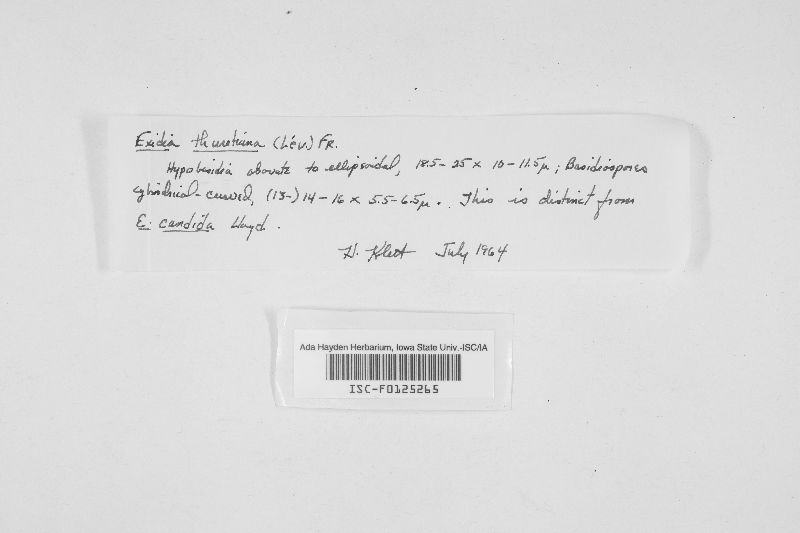 Exidia thuretiana (Lév.) Fr.
Hypobasidia obovate to ellipsoidal, 18.5-25 x 10-11.5µ; Basidiospores
cylindrical-curved, (13-)14-16 x 5.5-6.5µ. This is distinct from
E. candida Lloyd.
H. Klett July 1964
Ada Hayden Herbarium, Iowa State Univ.-ISC/IA
ISC-F0125265